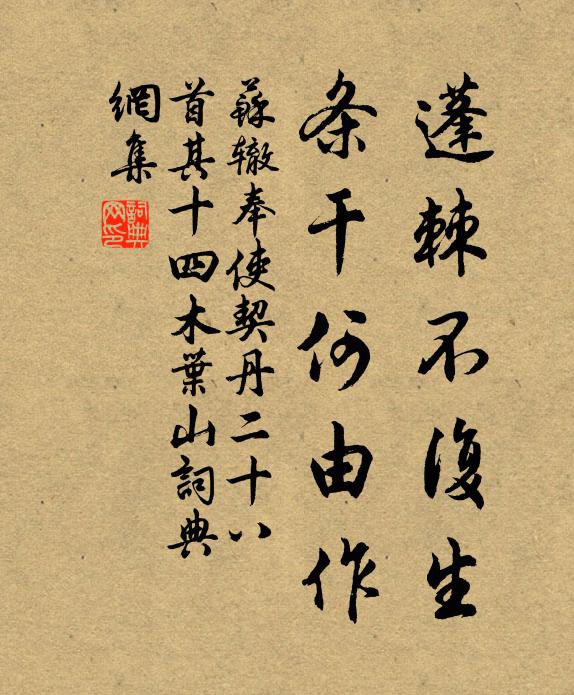 蓬棘不復生
条干何由作
蘇辙奉使契丹二十八
首其十四木葉山詞典
網集
詞典
网印